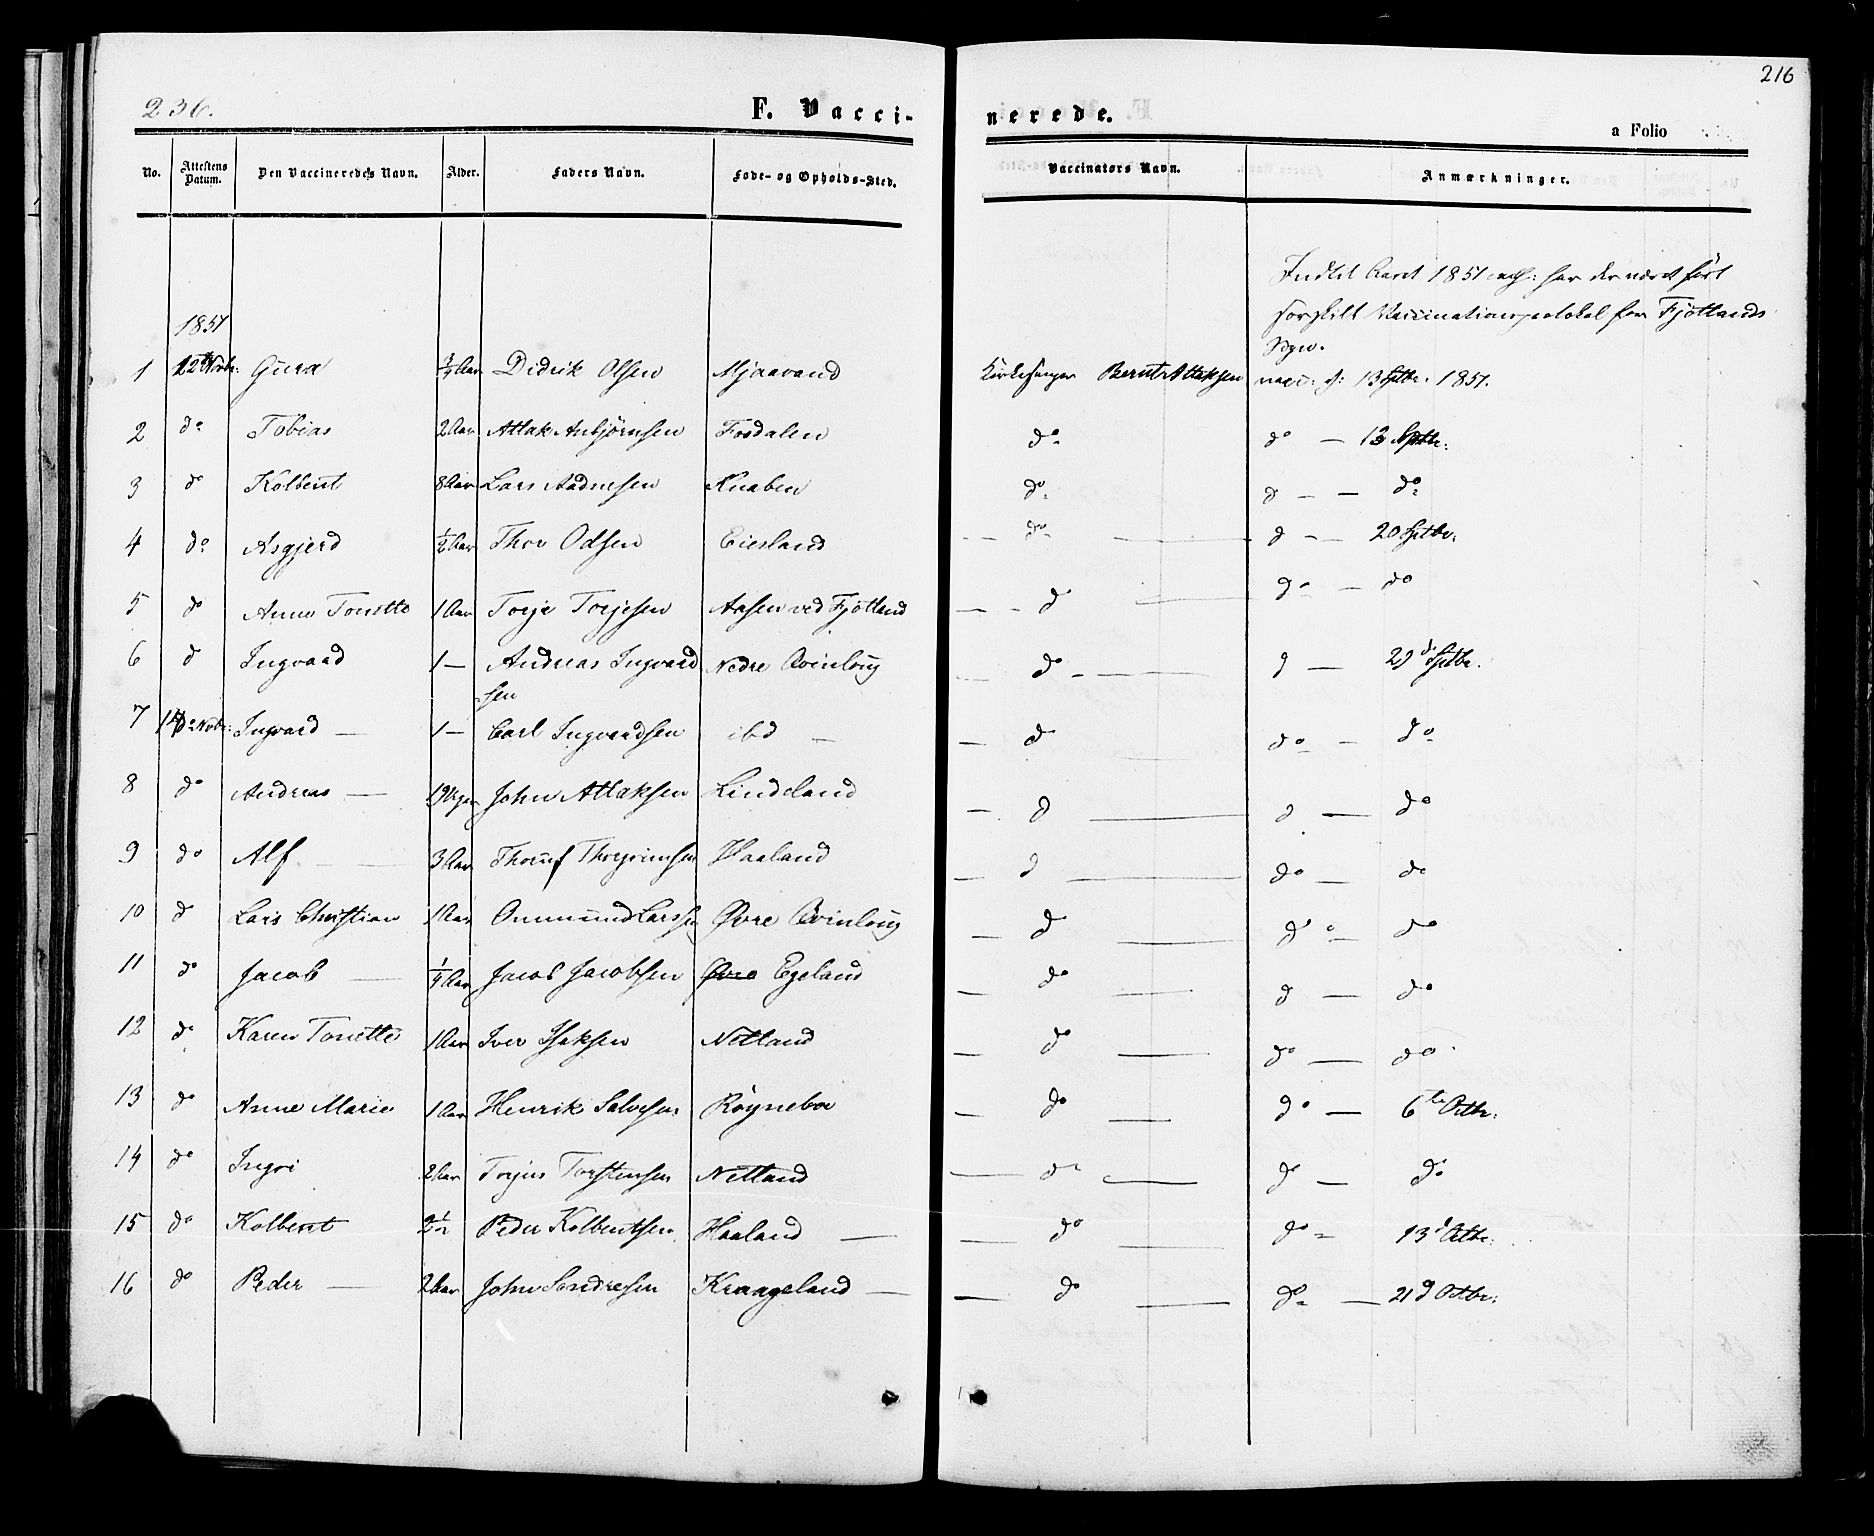 236.
F. Vacci-
nerede.
216
a Folio
No. Attestens Datum. Den Vaccineredes Navn. Alder. Faders Navn. Føde- og Opholds-Sted. Vaccinators Navn. Anmærkninger.
Indtil Aaret 1851 har der været ført
særskilt Vaccinationsprotokol for Fjotlands
Sogn.
1851
1 12te Novbr: Gura Aar Didrik Olsen Mjaavand Kirkesanger Bernt Attaksen vacc: d: 13 Sptbr. 1851.
2 do Tobias 2 Aar Attak Anbjørnsen Fosdalen do do — 13 Sptbr:
3 do Kolbent 8 Aar Lars Aadnesen Knaben do d — — do
4 do Asgjerd ½ Aar Thor Odsen Eiesland — — do — d — — 20 Sptbr:
5 do Anne Tonette 1 Aar Torje Torjesen Aasen ved Fjotland — — d — do — do
6 d Ingvard 1 — Andreas Ingvard Nedre Qvinlaug d — — d — 29d Sptbr.
sen
7 14de Novbr: Ingvard — 1 — Carl Ingvardsen ibd — — d do — do
8 do Andreas — 19 Uger John Attaksen Lindeland — d — d — do
9 do Alf — 3 Aar Thorgrimsen Haaland — d — do — do
10 d Lars Christian 1 Aar Ommund Larssen Øvre Qvinlaug — d — do — do
11 do Jacob — ¼ Aar Jacob Jacobsen Øvre Egeland — do — d — do
12 do Karen Tonette 1 Aar Iver Isaksen Netland — do — do — do
13 do Anne Marie 1 Aar Henrik Salvesen Røyneboe — do — do — 6te Octbr:
14 do Ingri 2 Aar Torjus Torstensen Netland — do — do — do
15 do Kolbent 2½ Peder Kolbentsen Haaland — — do — do — 13d Octbr:
16 do Peder — 2 Aar John Sondresen Kraageland — — do — do — 21d Octbr: